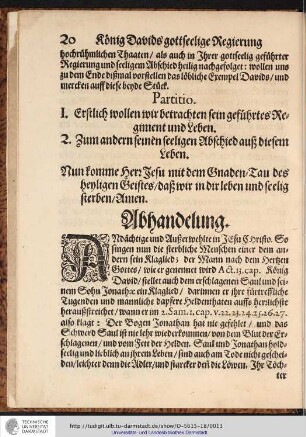 20 König Davids gottseelige Regierung
hochrühmlichen Thaaten/ als auch in Ihrer gottselig geführter
Regierung und seeligem Abschied heilig nachgefolget: wollen uns
zu dem Ende dißmal vorstellen das löbliche Exempel Davids/ und
mercken auff diese beyde Stück.
Partitio.
1. Erstlich wollen wir betrachten sein geführtes Re-
giment und Leben.
2. Zum andern seinen seeligen Abschied auß diesem
Leben.
Nun komme Herr Jesu mit dem Gnaden-Tau des
heyligen Geistes/ daß wir in dir leben und seelig
sterben/ Amen.
Abhandelung.
ANdächtige und Außerwehlte in JEsu Christo. So
singen nun die sterbliche Menschen einer dem an-
dern sein Klaglied: der Mann nach dem Hertzen
Gottes/ wie er genennet wird Act. 13. cap. König
David/ stellet auch dem erschlagenen Saul und sei-
nem Sohn Jonathæ ein Klaglied/ darinnen er ihre fürtreffliche
Tugenden und mannliche dapfere Heldenthaten auffs herrlichste
herausstreichet/ wann er im 2. Sam. 1. cap. v. 22. 23. 24. 25. 26. 27.
also klagt: Der Bogen Jonathan hat nie gefehlet/ und das
Schwerd Saul ist nie lehr wiederkommen/ von dem Blut der Er-
schlagenen/ und vom Fett der Helden. Saul und Jonathan hold-
seelig und lieblich an ihrem Leben/ sind auch am Tode nicht geschei-
den/ leichter denn die Adler/ und stärcker denn die Löwen. Ihr Töch-
ter
http://tudigit.ulb.tu-darmstadt.de/show/D-5515-18/0013
Universitäts- und Landesbibliothek Darmstadt